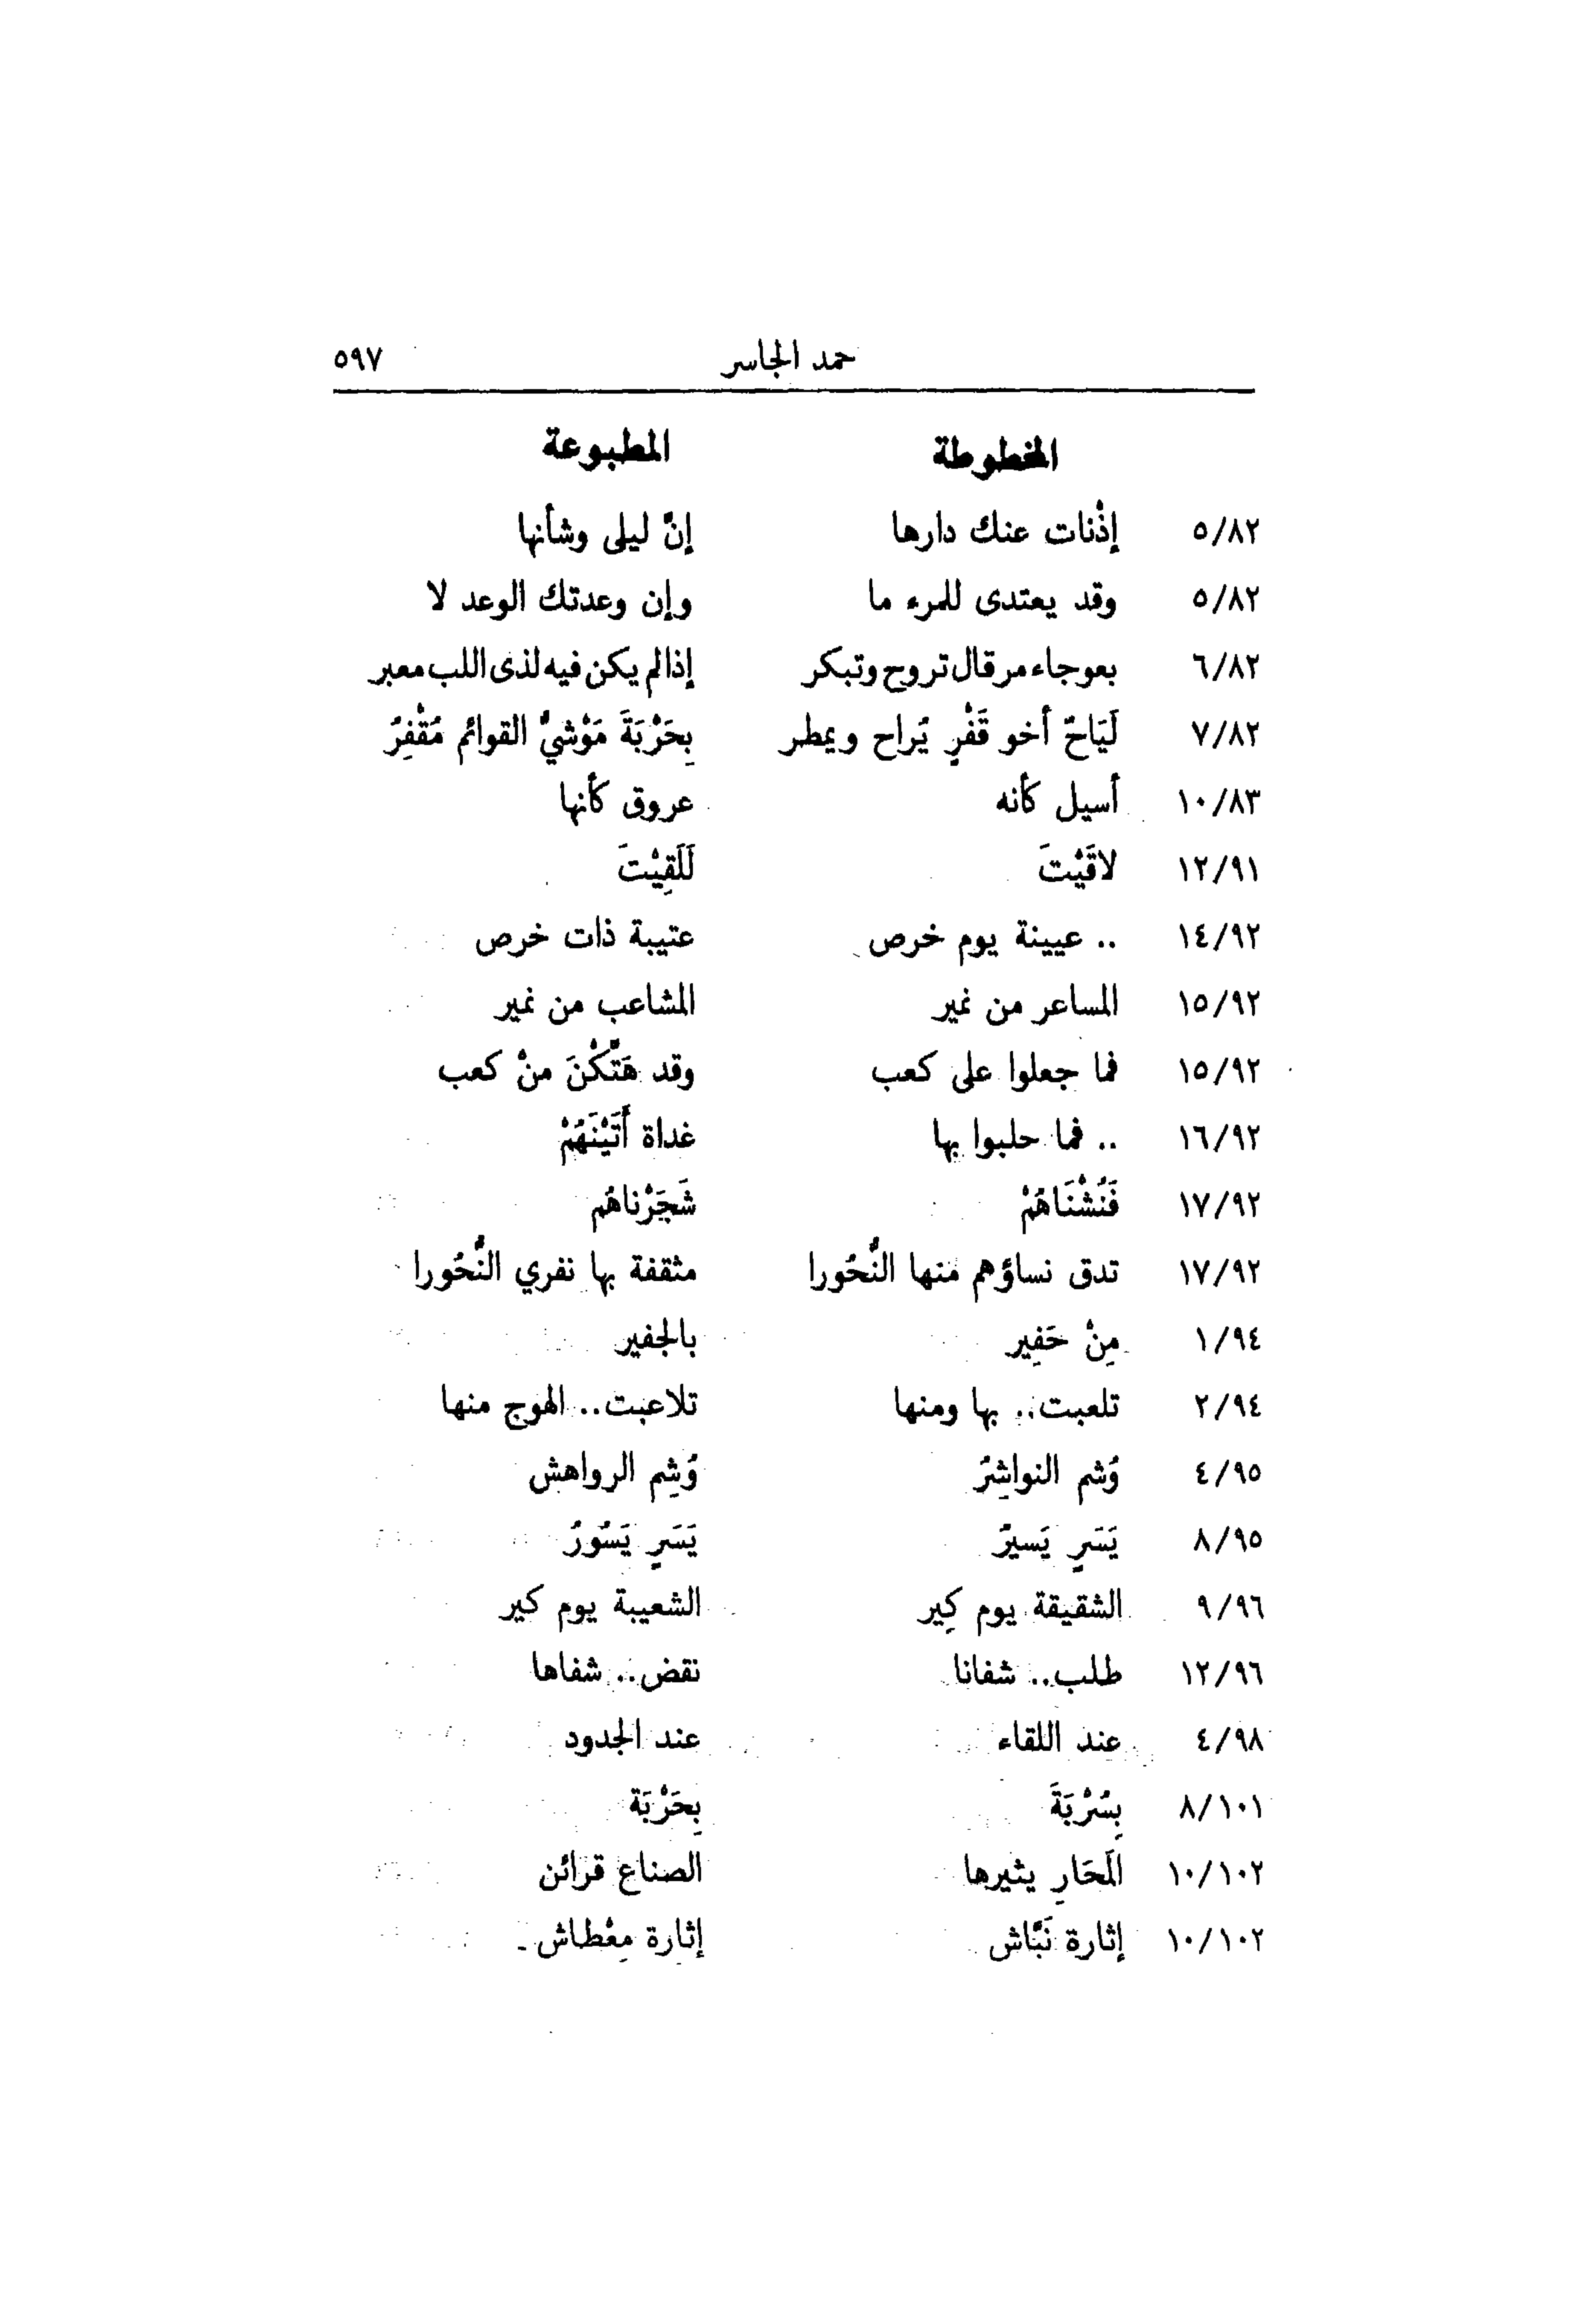 حمد الجاسر ٥٩٧
المخطوطة المطبوعة
٥/٨٢ إذْنات عنك دارها إنَّ ليلى وشأنها
٥/٨٢ وقد يعتدى للمرء ما وإن وعدتك الوعد لا
٦/٨٢ بعوجاء مرقال تروح وتبكر إذا لم يكن فيه لذى اللب معبر
٧/٨٢ لَيَاحٌ أخو قَفْرٍ يُراح ويمطر بِحَرْبَةَ مَوْشيُّ القوائم مُقْفِرُ
١٠/٨٣ أسيل كأنه عروق كأنها
١٢/٩١ لاقَيْتَ لَلَقِيْتَ
١٤/٩٢ .. عيينة يوم خرص عتيبة ذات خرص
١٥/٩٢ المساعر من نمير المشاعب من نمير
١٥/٩٢ فما جعلوا على كعب وقد هَتَّكْنَ منْ كعب
١٦/٩٢ .. فما حلبوا بها غداة أَتَيْنَهُمْ
١٧/٩٢ فَنُشْنَاهُمْ شَجَرْناهُم
١٧/٩٢ تدق نساؤهم منها النُّحُورا مثقفة بها نفري النُّحُورا
١/٩٤ مِنْ حَفِير بالجفير
٢/٩٤ تلعبت.. بها ومنها تلاعبت.. الهوج منها
٤/٩٥ وُشم النواشِرُ وُشِم الرواهش
٨/٩٥ يَسَرٍ يَسيرُ يَسَرٍ يَسُورُ
٩/٩٦ الشقيقة يوم كِير الشعيبة يوم كير
١٢/٩٦ طلب.. شفانا نقض.. شفاها
٤/٩٨ عند اللقاء عند الجدود
٨/١٠١ بِسُرْبَةَ بِحَرْبَة
١٠/١٠٢ المَحَارِ يثيرها الصناع قرائن
١٠/١٠٢ إثارة نَبَّاش إثارة مِعْطاش